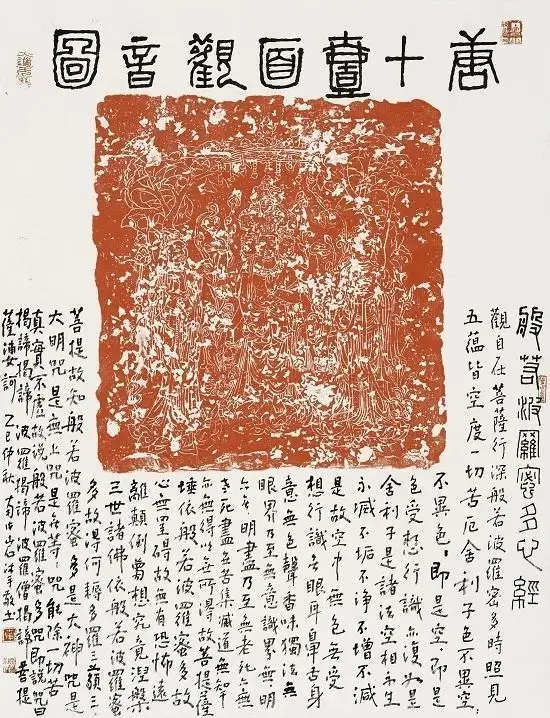 唐十壹面觀音圖
般若波羅蜜多心經
觀自在菩薩行深般若波羅密多時照見
五蘊皆空度一切苦厄舍利子色不異空
不異色即是空即是
色受想行識亦復如是
舍利子是諸法空相不生
不滅不垢不淨不增不減
是故空中無色無受
想行識無眼耳鼻舌身
意無色聲香味觸法無
眼界乃至無意識界無無明
亦無明盡乃至無老死亦無
老死盡無苦集滅道無智
亦無得以無所得故菩提薩
埵依般若波羅蜜多故
心無罣礙故無有恐怖遠
離顛倒夢想究竟涅槃
三世諸佛依般若波羅蜜
多故得阿耨多羅三藐三
菩提故知般若波羅蜜多是大神咒是
大明咒是無上咒是無等等咒能除一切苦
真實不虛故說般若波羅蜜多咒即說咒曰
揭諦揭諦波羅揭諦波羅僧揭諦菩提
薩婆訶 乙巳仲秋